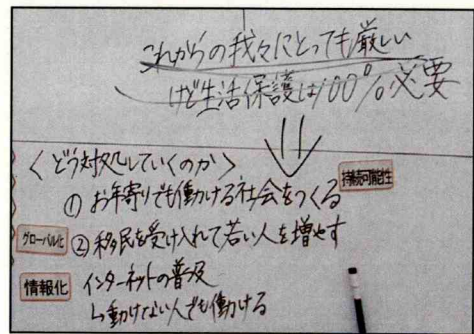 これからの我々にとっても厳しい
けど生活保護は100%必要
〈どう対処していくのか〉
① お年寄りでも働ける社会をつくる 持続可能性
グローバル化 ② 移民を受け入れて若い人を増やす
情報化 インターネットの普及
↳動けない人でも働ける